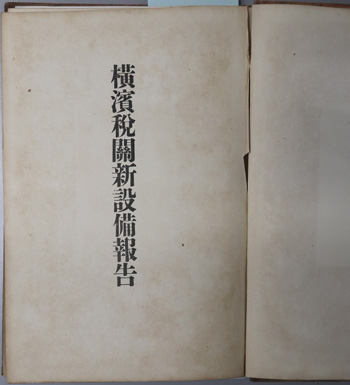 橫濱稅關新設備報告